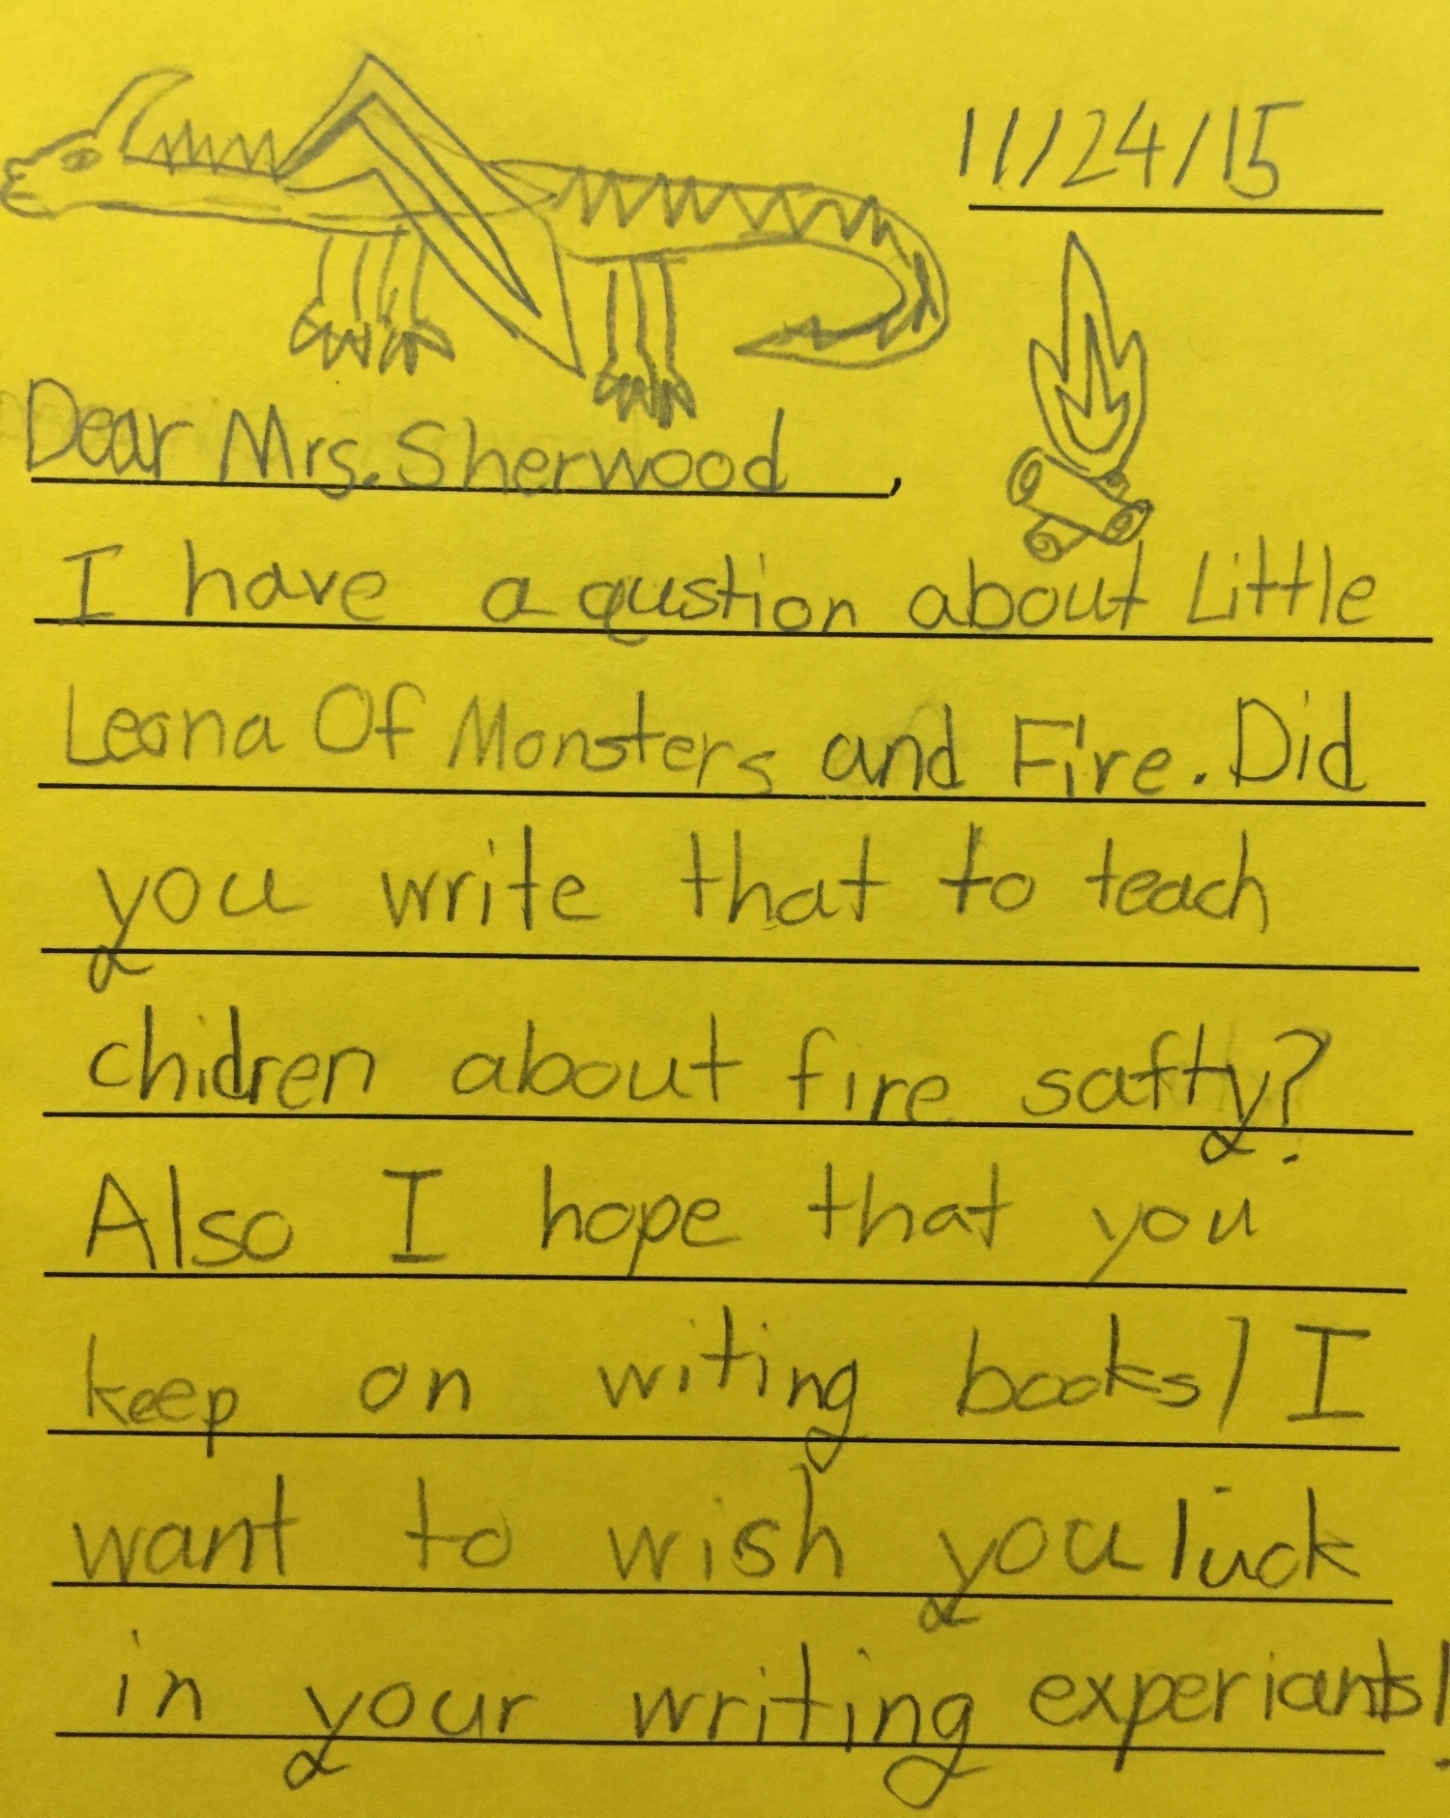 11/24/15
Dear Mrs. Sherwood,
I have a qustion about Little
Leana Of Monsters and Fire. Did
you write that to teach
chidren about fire safty?
Also I hope that you
keep on witing books! I
want to wish you luck
in your writing experiants!